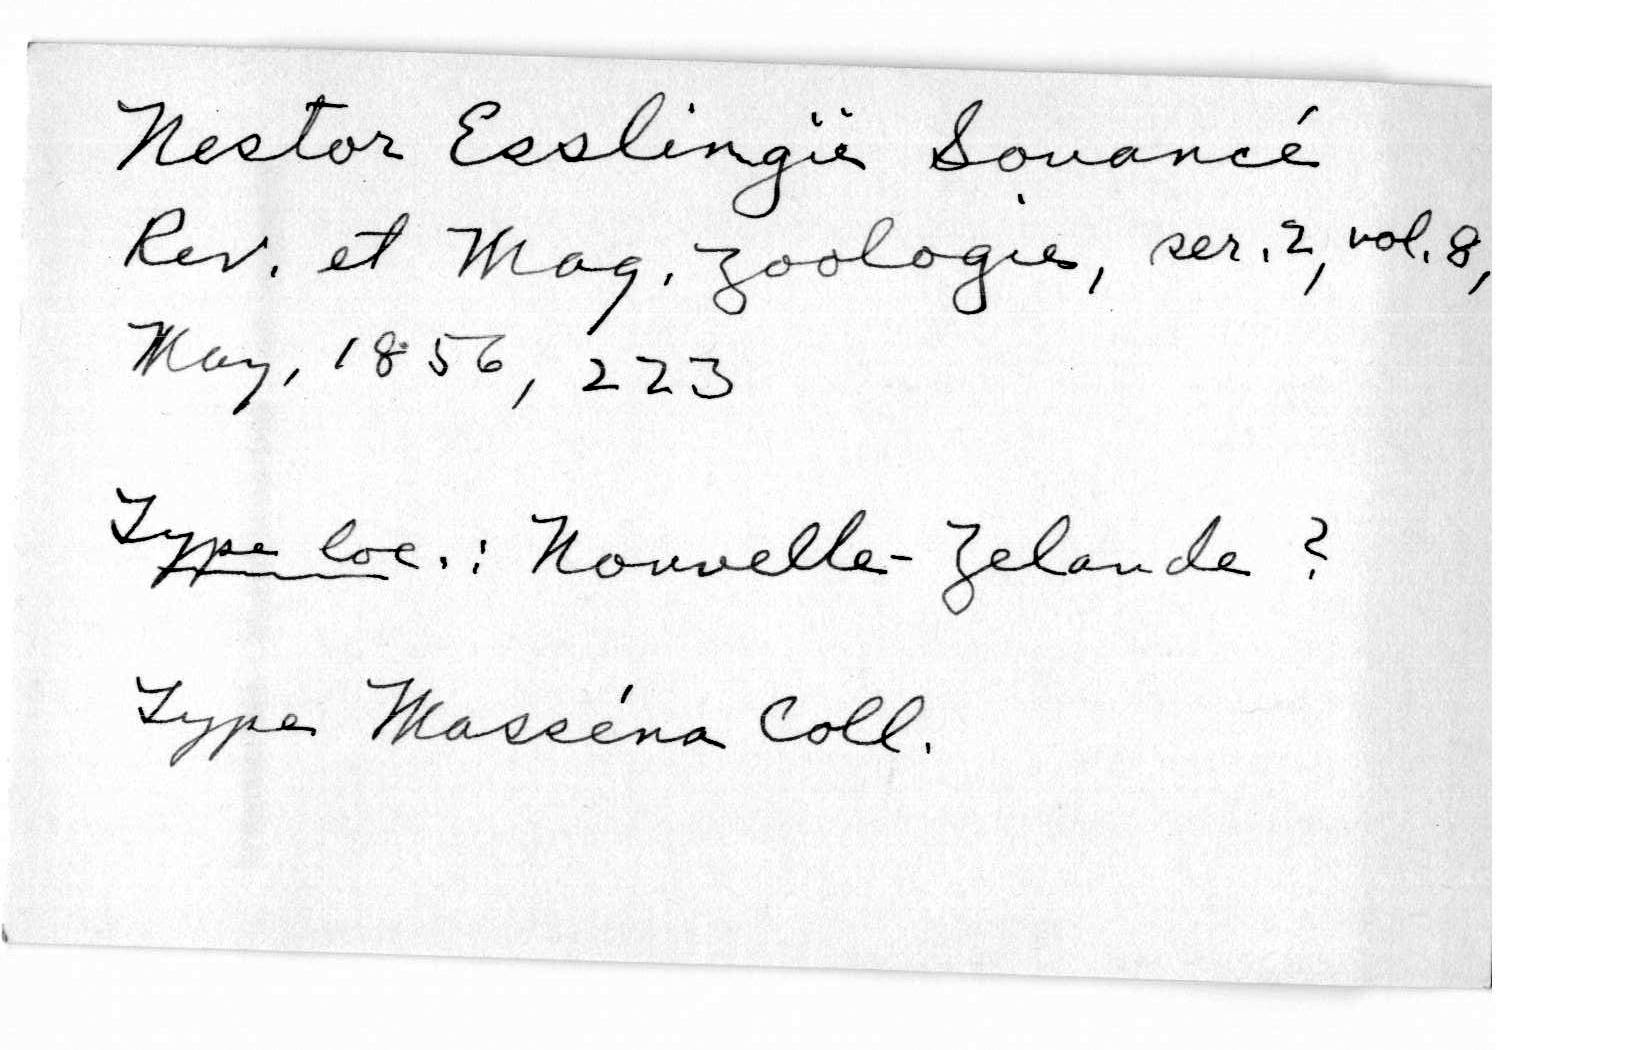 Nestor Esslingii Souancé
Rev. et Mag. Zoologie, ser. 2, vol. 8,
May, 1856, 223
Type loc.: Nouvelle-Zelande ?
Type Masséna Coll.